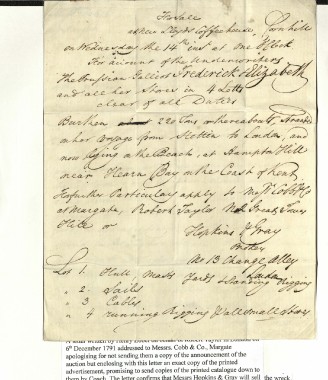 For Sale
at New Lloyds Coffee house, Cornhill
on Wednesday the 14th inst at One o'Clock
For Account of the Underwriters
The Prussian Galliot Frederick Elizabeth
and all her Stores in 4 Lotts
clear of all Duties
Burthen about 220 Tons or thereabouts, Stranded
on her Voyage from Stettin to London, and
now lying on the Beach, at Hampton Hill
near Hearn Bay on the Coast of Kent
For further Particulars apply to Messrs Cobb & Co
at Margate, Robert Taylor No Great Tower
Hill or
Hopkins & Gray
Brokers
No 13 Change Alley
London
Lot 1 Hull, Masts Yards Standing Rigging
" 2 Sails
" 3 Cables
" 4 running Rigging Wallsmall Stores
6th December 1791 addressed to Messrs, Cobb & Co., Margate
apologising for not sending them a copy of the announcement of the
auction but enclosing with this letter an exact copy of the printed
advertisement, promising to send copies of the printed catalogue down to
them by Coach. The letter confirms that Messrs Hopkins & Gray will sell the wreck